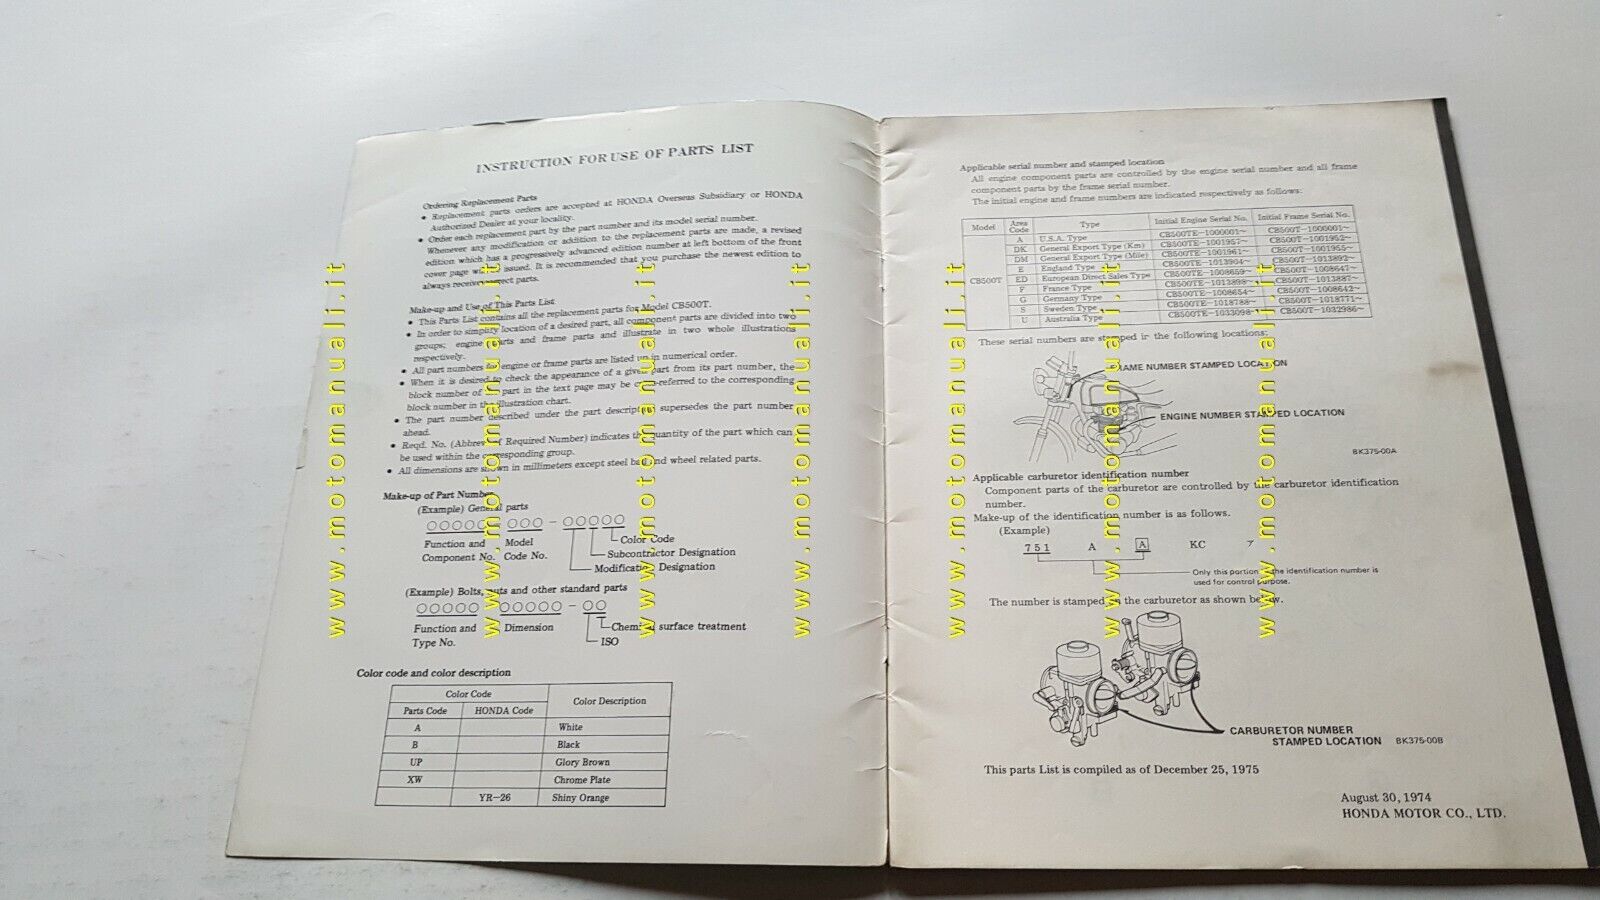 INSTRUCTION FOR USE OF PARTS LIST
Ordering Replacement Parts
• Replacement parts orders are accepted at HONDA Overseas Subsidiary or HONDA
Authorized Dealer at your locality.
• Order each replacement part by the part number and its model serial number.
Whenever any modification or addition to the replacement parts are made, a revised
edition which has a progressively advanced edition number at left bottom of the front
cover page will be issued. It is recommended that you purchase the newest edition to
always receive correct parts.
Make-up and Use of This Parts List
• This Parts List contains all the replacement parts for Model CB500T.
• In order to simplify location of a desired part, all component parts are divided into two
groups; engine parts and frame parts and illustrate in two whole illustrations
respectively.
• All part numbers for engine or frame parts are listed up in numerical order.
• When it is desired to check the appearance of a given part from its part number, the
block number of the part in the text page may be cross-referred to the corresponding
block number in the illustration chart.
• The part number described under the part description supersedes the part number
ahead.
• Reqd. No. (Abbrev. of Required Number) indicates the quantity of the part which can
be used within the corresponding group.
• All dimensions are shown in millimeters except steel ball and wheel related parts.
Make-up of Part Number
(Example) General parts
○○○○○ - ○○○ - ○○○○○
Function and Model Color Code
Component No. Code No. Subcontractor Designation
Modification Designation
(Example) Bolts, nuts and other standard parts
○○○○○ - ○○○○○ - ○○
Function and Dimension Chemical surface treatment
Type No. ISO
Color code and color description
Color Code Color Description
Parts Code HONDA Code
A White
B Black
UP Glory Brown
XW Chrome Plate
YR-26 Shiny Orange
Applicable serial number and stamped location
All engine component parts are controlled by the engine serial number and all frame
component parts by the frame serial number.
The initial engine and frame numbers are indicated respectively as follows:
Model Area Code Type Initial Engine Serial No. Initial Frame Serial No.
CB500T A U.S.A. Type CB500TE-1000001~ CB500T-1000001~
DK General Export Type (Km) CB500TE-1001957~ CB500T-1001952~
DM General Export Type (Mile) CB500TE-1001961~ CB500T-1001955~
E England Type CB500TE-1013904~ CB500T-1013892~
ED European Direct Sales Type CB500TE-1008659~ CB500T-1008647~
F France Type CB500TE-1013898~ CB500T-1013887~
G Germany Type CB500TE-1008654~ CB500T-1008642~
S Sweden Type CB500TE-1018788~ CB500T-1018771~
U Australia Type CB500TE-1033098~ CB500T-1032986~
These serial numbers are stamped in the following locations:
FRAME NUMBER STAMPED LOCATION
ENGINE NUMBER STAMPED LOCATION
BK375-00A
Applicable carburetor identification number
Component parts of the carburetor are controlled by the carburetor identification
number.
Make-up of the identification number is as follows.
(Example)
751 A A KC 7
Only this portion of the identification number is
used for control purpose.
The number is stamped on the carburetor as shown below.
CARBURETOR NUMBER
STAMPED LOCATION BK375-00B
This parts List is compiled as of December 25, 1975
August 30, 1974
HONDA MOTOR CO., LTD.
www.motomanuali.it
www.motomanuali.it
www.motomanuali.it
www.motomanuali.it
www.motomanuali.it
www.motomanuali.it
www.motomanuali.it